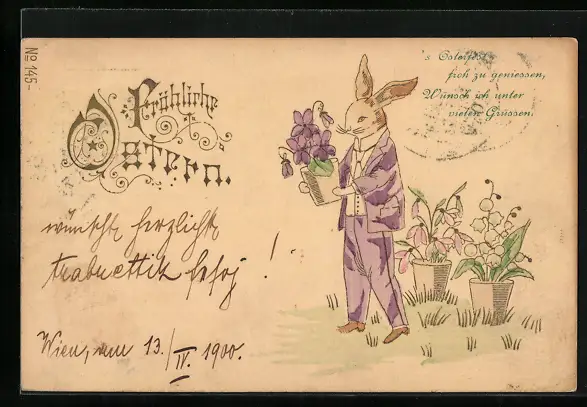 No 145-
Fröhliche
Ostern.
's Osterfest
froh zu geniessen,
Wünsch ich unter
vielen Grüssen.
wünscht herzlichst
!
Wien, am 13./IV. 1900.